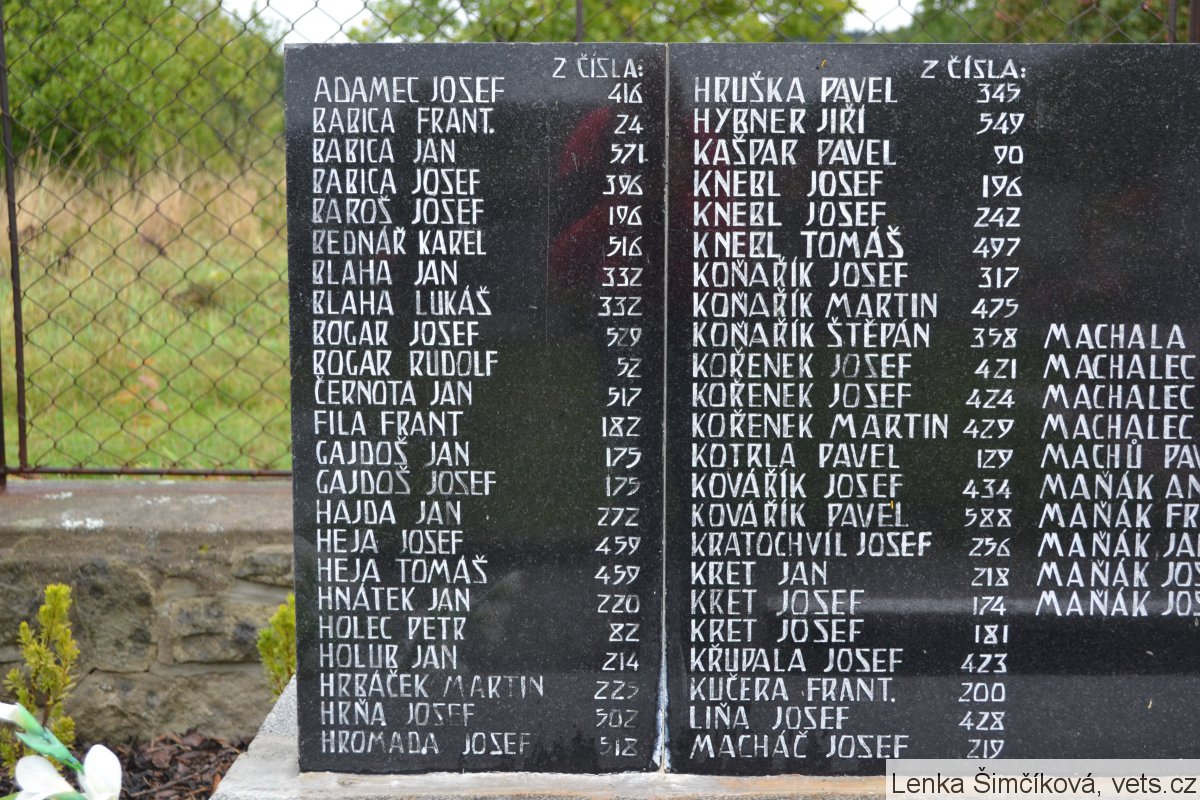 Z ČÍSLA:
ADAMEC JOSEF 416
BABICA FRANT. 24
BABICA JAN 571
BABICA JOSEF 396
BAROŠ JOSEF 196
BEDNÁŘ KAREL 516
BLAHA JAN 332
BLAHA LUKÁŠ 332
BOGAR JOSEF 529
BOGAR RUDOLF 52
ČERNOTA JAN 517
FILA FRANT 182
GAJDOŠ JAN 175
GAJDOŠ JOSEF 175
HAJDA JAN 272
HEJA JOSEF 459
HEJA TOMÁŠ 459
HNÁTEK JAN 220
HOLEC PETR 82
HOLUB JAN 214
HRBÁČEK MARTIN 225
HRŇA JOSEF 502
HROMADA JOSEF 518
Z ČÍSLA:
HRUŠKA PAVEL 345
HYBNER JIŘÍ 549
KAŠPAR PAVEL 90
KNEBL JOSEF 196
KNEBL JOSEF 242
KNEBL TOMÁŠ 497
KOŇAŘÍK JOSEF 317
KOŇAŘÍK MARTIN 475
KOŇAŘÍK ŠTĚPÁN 358
KOŘENEK JOSEF 421
KOŘENEK JOSEF 424
KOŘENEK MARTIN 429
KOTRLA PAVEL 129
KOVÁŘÍK JOSEF 434
KOVÁŘÍK PAVEL 588
KRATOCHVÍL JOSEF 256
KRET JAN 218
KRET JOSEF 174
KRET JOSEF 181
KŘUPALA JOSEF 423
KUČERA FRANT. 200
LIŇA JOSEF 428
MACHÁČ JOSEF 219
MACHALA
MACHALEC
MACHALEC
MACHALEC
MACHŮ PAV
MAŇÁK AN
MAŇÁK FR
MAŇÁK JA
MAŇÁK JOS
MAŇÁK JOS
Lenka Šimčíková, vets.cz